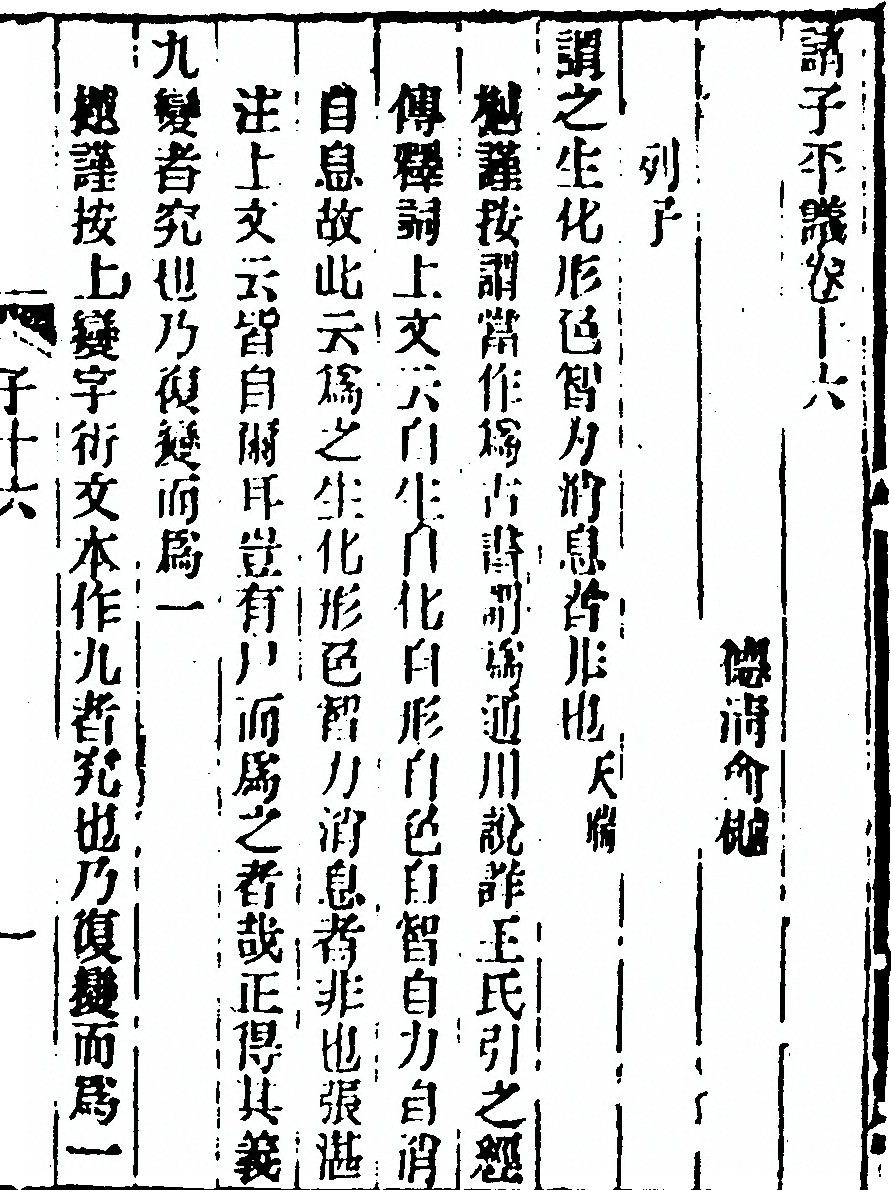 諸子平議卷十六
德清俞樾
列子
謂之生化形色智力消息者非也天瑞
樾謹按謂當作爲古書謂爲通用說詳王氏引之經
傳釋詞上文云自生自化自形自色自智自力自消
自息故此云爲之生化形色智力消息者非也張湛
注上文云皆自爾耳豈有尸而爲之者哉正得其義
九變者究也乃復變而爲一
樾謹按上變字衍文本作九者究也乃復變而爲一
子十六
一